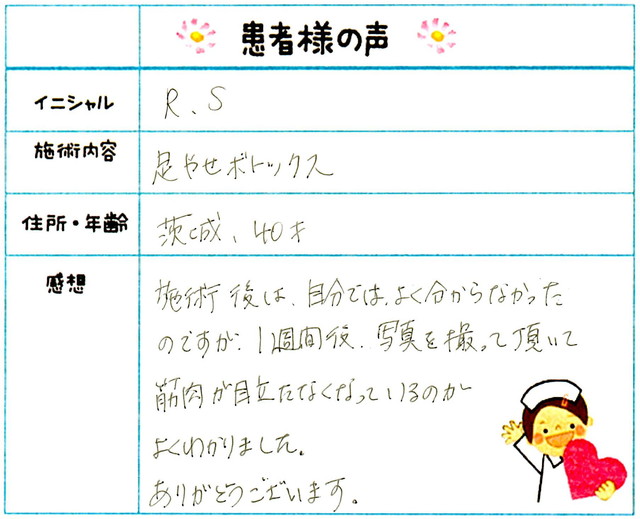 患者様の声
イニシャル R、S
施術内容 足やせボトックス
住所・年齢 茨城、40才
感想 施術後は、自分では、よく分からなかった
のですが、1週間後、写真を撮って頂いて
筋肉が目立たなくなっているのが
よくわかりました。
ありがとうございます。